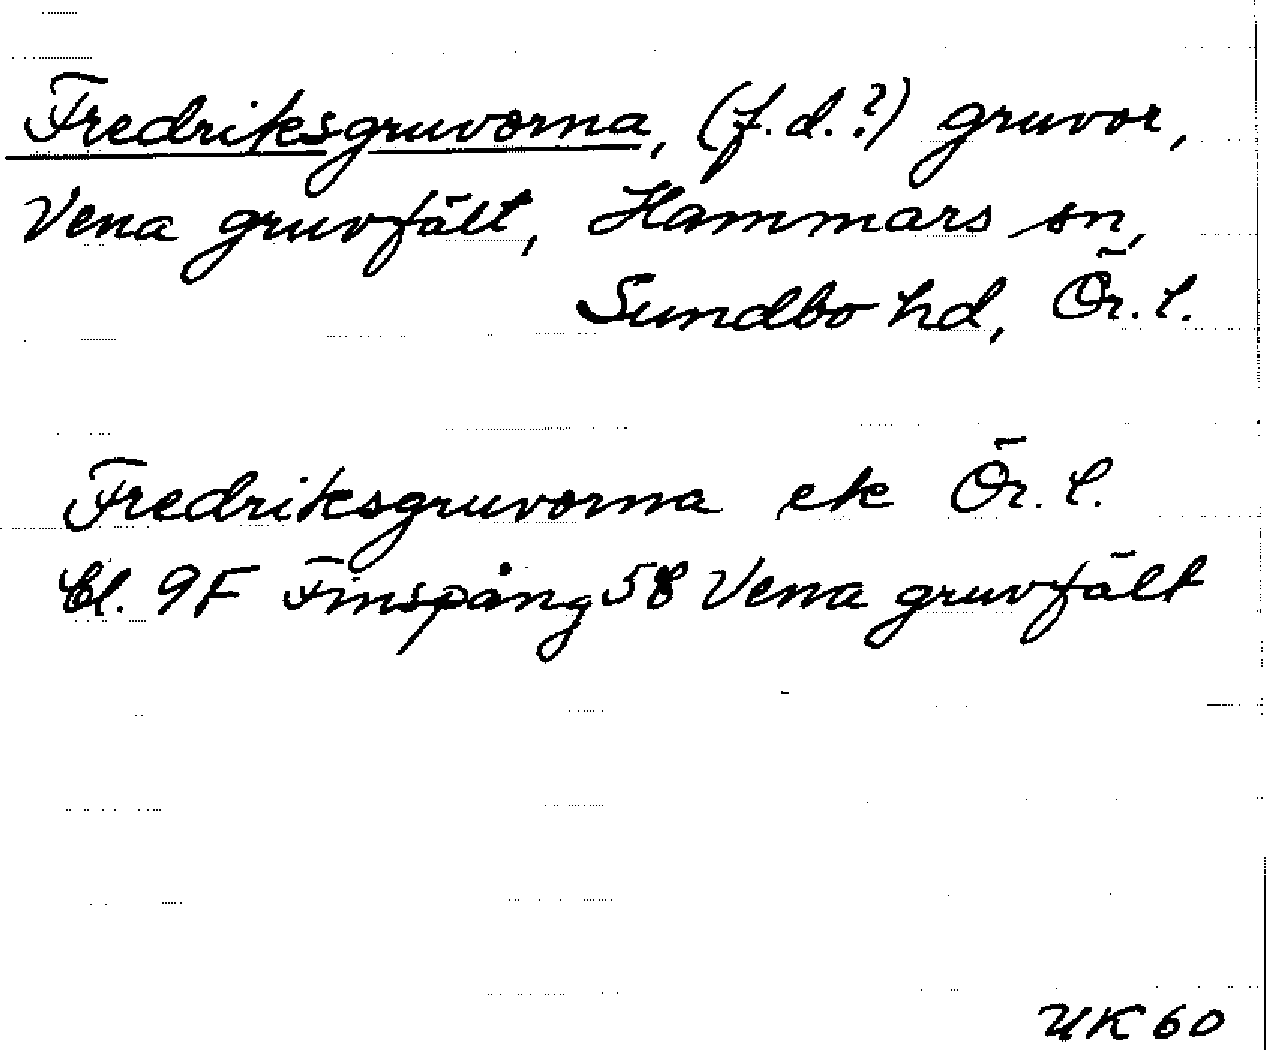 Fredriksgruvorna, (f.d.?) gruvor,
Vena gruvfält, Hammars sn,
Sundbo hd, Ör. l.
Fredriksgruvorna ek Ör. l.
bl. 9F Finspång 58 Vena gruvfält
UK 60